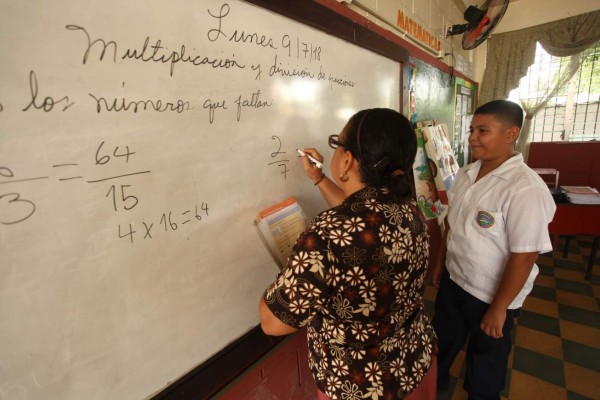 MATEMATICAS
Lunes 9/7/18
Multiplicación y división de fracciones
los números que faltan
3 = 64/15
4 x 16 = 64
2/7